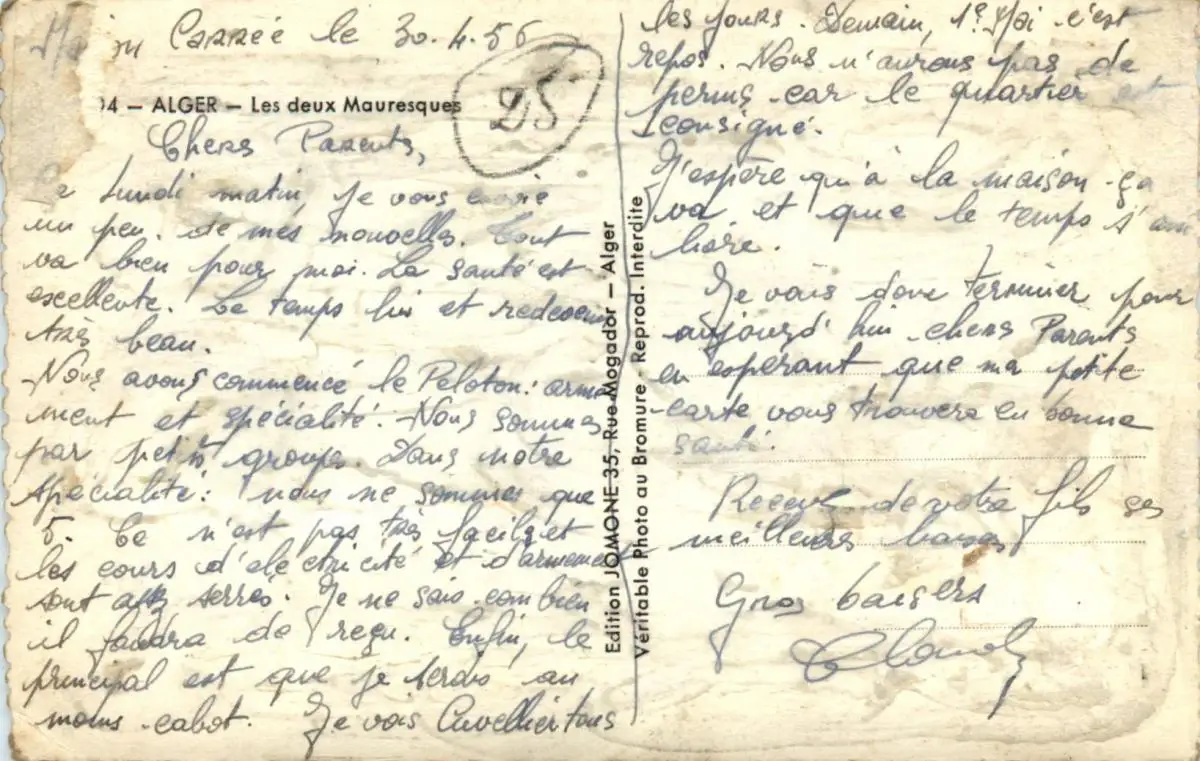 Carrée le 30.4.56
25
14 — ALGER — Les deux Mauresques
Chers Parents,
Lundi matin, je vous envoie
un peu de mes nouvelles. Tout
va bien pour moi. La santé est
excellente. Le temps lui et redevenu
très beau.
Nous avons commencé le Peloton : arme
ment et spécialité. Nous sommes
par petits groupes. Dans notre
spécialité : nous ne sommes que
5. Ce n'est pas très facile et
les cours d'électricité et d'armement
sont assez serrés. Je ne sais combien
il faudra de reçu. Enfin, le
principal est que je serais au
moins cabot. Je vois Cuvellier tous
les jours. Demain, 1er Mai c'est
repos. Nous n'aurons pas de
perms car le quartier est
consigné.
J'espère qu'à la maison ça
va et que le temps s'amé
liore.
Je vais donc terminer pour
aujourd'hui chers Parents
en espérant que ma petite
carte vous trouvera en bonne
santé.
Recevez de votre fils ses
meilleurs baisers
Gros baisers
Claude
Edition JOMONE 35, Rue Mogador — Alger
Véritable Photo au Bromure - Reprod. Interdite